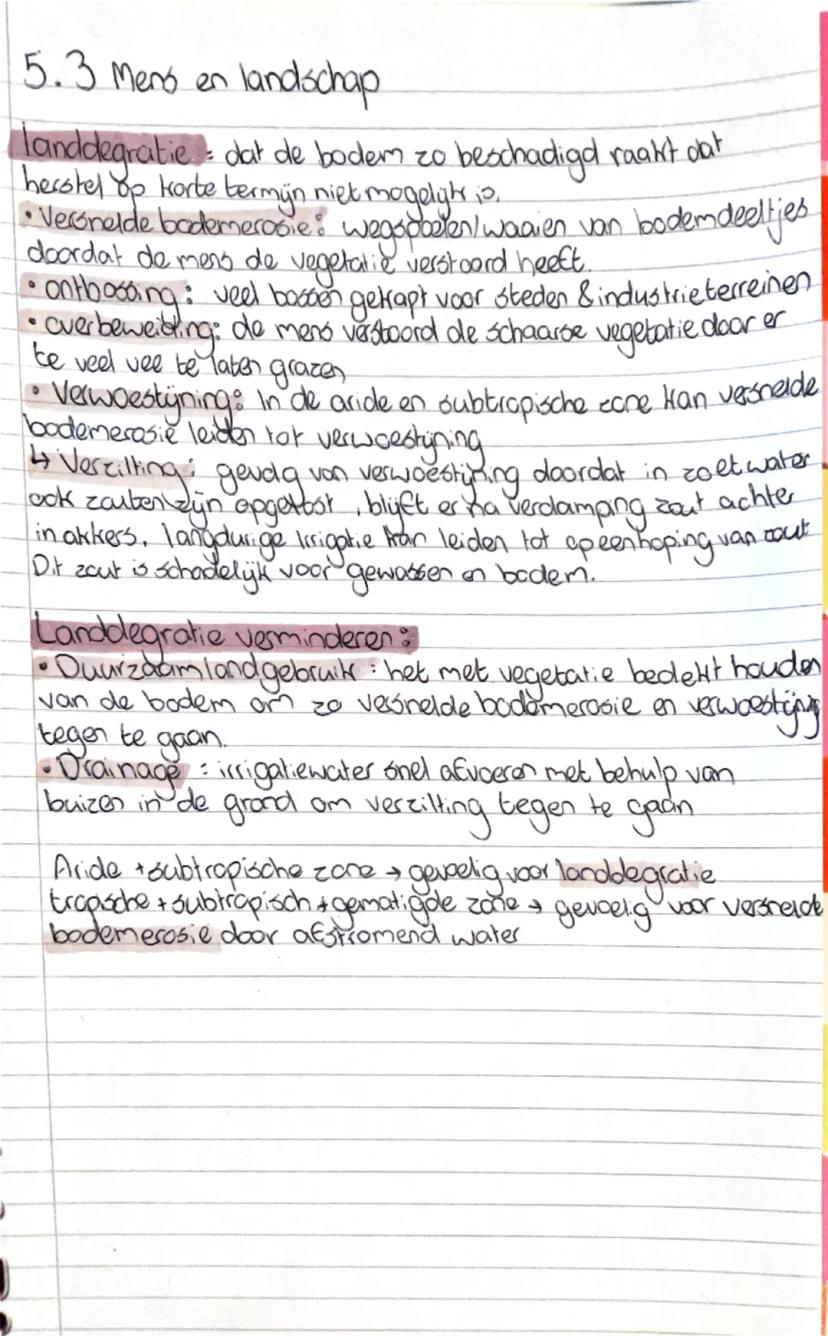 5.3 Mens en landschap
landdegratie : dat de bodem zo beschadigd raakt dat
herstel op korte termijn niet mogelijk is.
• Versnelde bodemerosie: wegspoelen/waaien van bodemdeeltjes
doordat de mens de vegetatie verstoord heeft.
• ontbossing: veel bossen gekapt voor steden & industrieterreinen
• overbeweiding: de mens verstoord de schaarse vegetatie door er
te veel vee te laten grazen
• Verwoestijning: In de aride en subtropische zone kan versnelde
bodemerosie leiden tot verwoestijning
↳ Verzilting: gevolg van verwoestijning doordat in zoet water
ook zouten zijn opgelost, blijft er na verdamping zout achter
in akkers. langdurige irrigatie kan leiden tot opeenhoping van zout
Dit zout is schadelijk voor gewassen en bodem.
Landdegratie verminderen:
• Duurzaam landgebruik : het met vegetatie bedekt houden
van de bodem om zo versnelde bodemerosie en verwoestijning
tegen te gaan.
• Drainage : irrigatiewater snel afvoeren met behulp van
buizen in de grond om verzilting tegen te gaan
Aride + subtropische zone → gevoelig voor landdegratie
tropische + subtropisch + gematigde zone → gevoelig voor versnelde
bodemerosie door afstromend water